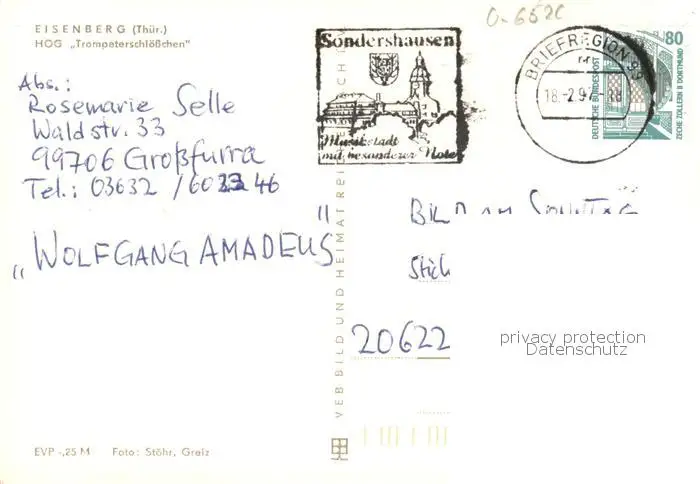 EISENBERG (Thür.)
HOG „Trompeterschlößchen"
Abs.:
Rosemarie Selle
Waldstr. 33
99706 Großfurra
Tel.: 03632 / 60 46
„WOLFGANG AMADEUS"
EVP -,25 M Foto: Stöhr, Greiz
VEB BILD UND HEIMAT REICH
Sondershausen
Musikstadt
mit besonderer Note
BRIEFREGION 99
18.-2.97 - 18
80
DEUTSCHE BUNDESPOST
ZECHE ZOLLERN II DORTMUND
BILD AM SONNTAG
Stich
20622
privacy protection
Datenschutz